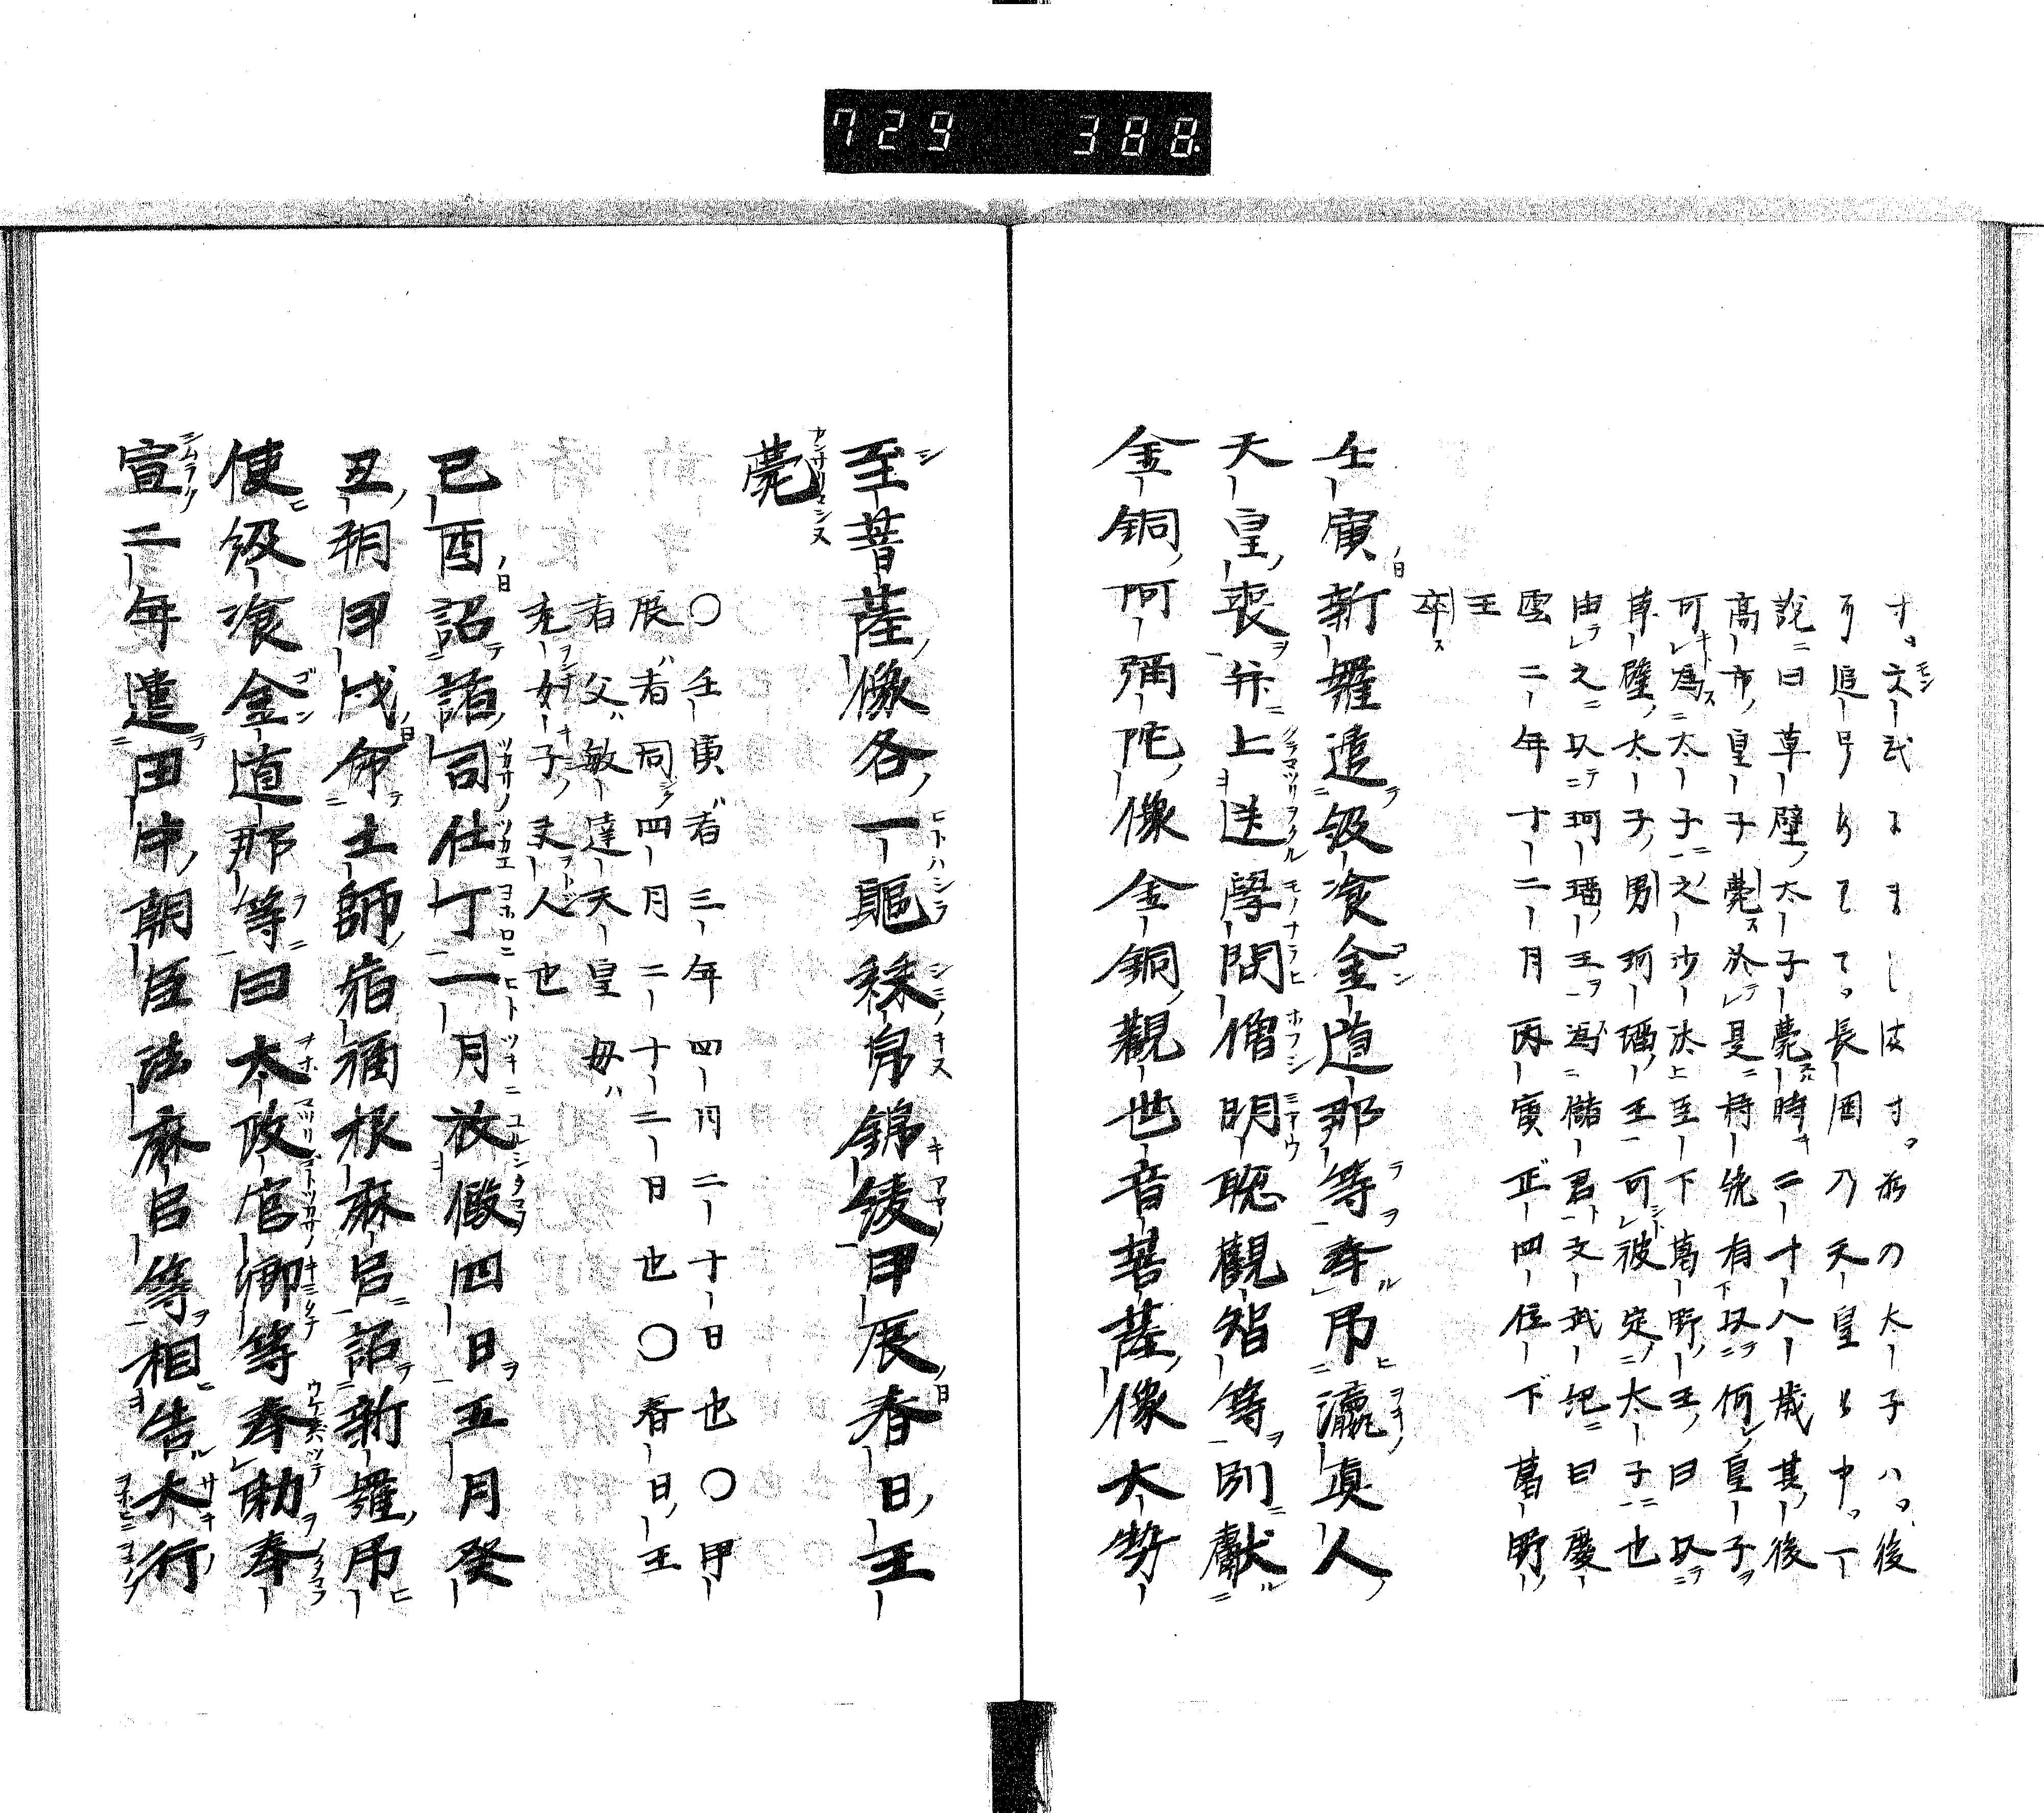 729 388
す。文武にましはす。歟の太子ハ。後
可追号ありてて。長岡乃天皇と申。一
説曰草壁太子薨時二十八歳其後
高市皇子薨於是将先有以何皇子
可為太子之沙汰至下葛野王曰以
草壁太子男珂瑠王可彼定太子也
由之以珂瑠王為儲君文武紀曰慶
雲二年十二月丙寅正四位下葛野
王
卒
壬寅新羅遣級飡金道那等奉弔瀛真人
天皇喪并上送学問僧明聡観智等別献
金銅阿弥陀像金銅観世音菩薩像大勢
至菩薩像各一躯綵帛錦綾甲辰春日王
薨
〇壬寅者三年四月二十日也〇甲
辰者同四月二十二日也〇春日王
者父敏達天皇母ハ
老女子夫人也
己酉詔諸司仕丁一月放仮四日五月癸
丑朔甲戌命土師宿禰根麻呂詔新羅弔
使級飡金道那等曰太政官卿等奉勅奉
宣二年遣田中朝臣法麻呂等相告大行